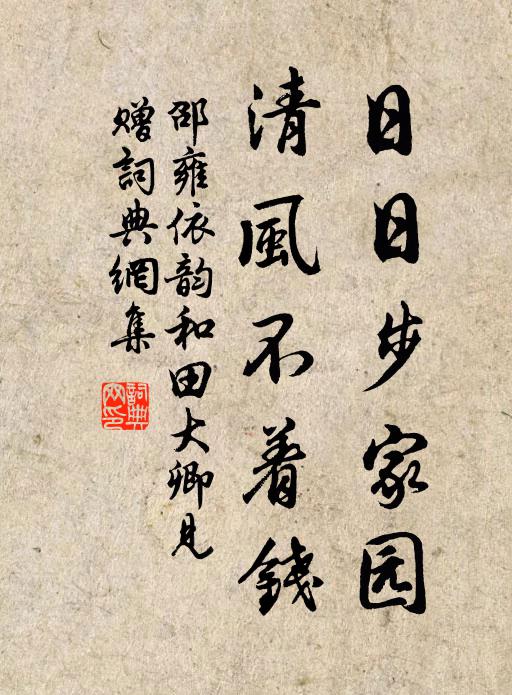 日日步家园
清風不着錢
邵雍依韵和田大卿見
贈詞典網集
詞典
网印